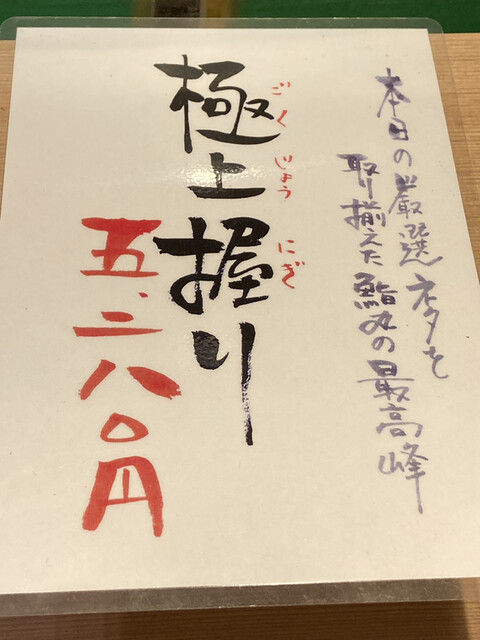 本日の厳選ネタを
取り揃えた鮨丸の最高峰
極上握り
ごくじょう にぎ
五、二八〇円